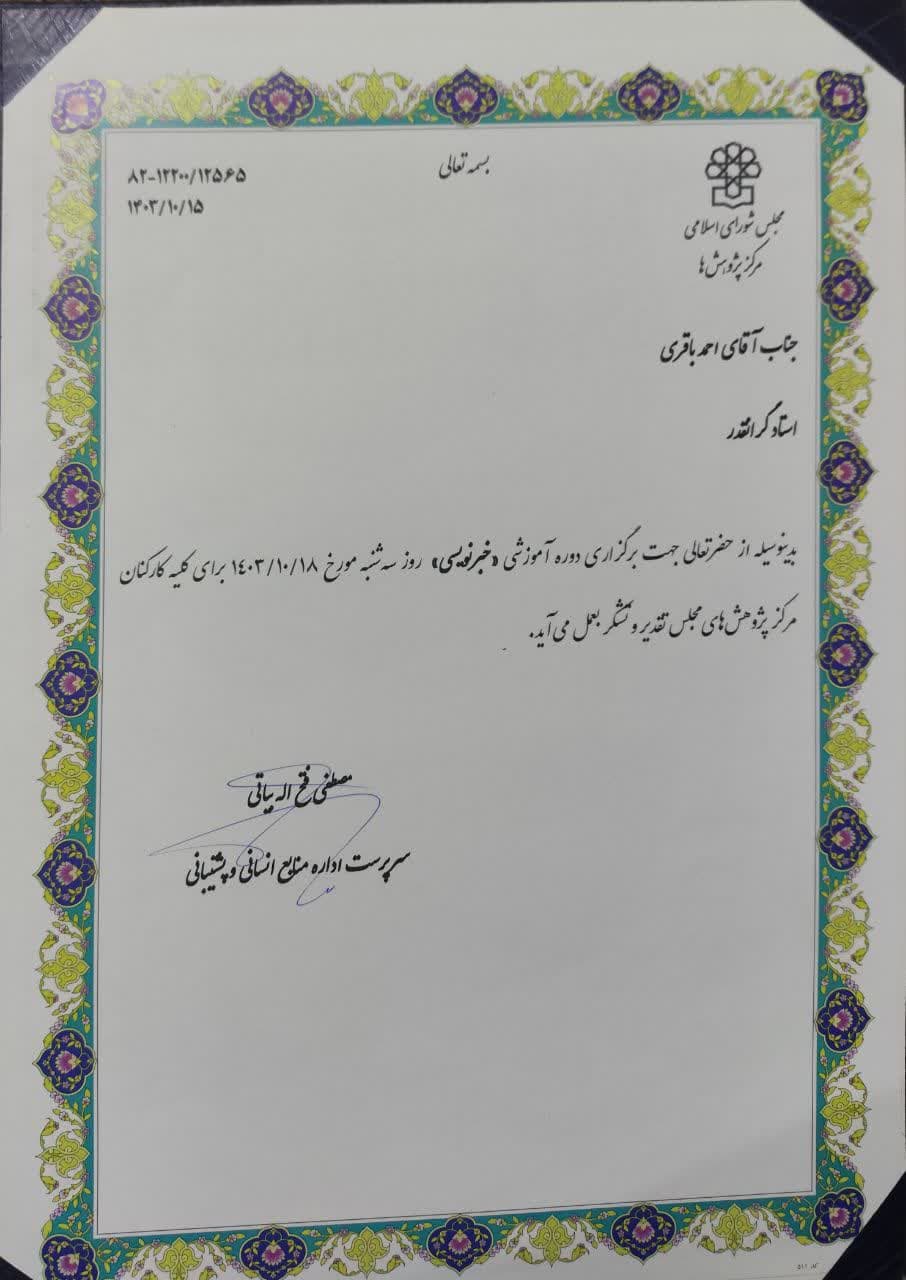 بسمه تعالی
مجلس شورای اسلامی
مرکز پژوهش‌ها
۸۲-۱۲۲۰۰/۱۲۵۶۵
۱۴۰۳/۱۰/۱۵
جناب آقای احمد باقری
استاد گرانقدر
بدینوسیله از حضرتعالی جهت برگزاری دوره آموزشی «خبرنویسی» روز سه‌شنبه مورخ ۱۴۰۳/۱۰/۱۸ برای کلیه کارکنان
مرکز پژوهش‌های مجلس تقدیر و تشکر بعمل می‌آید.
مصطفی فتح اله بیاتی
سرپرست اداره منابع انسانی و پشتیبانی
کد ۵۱۱